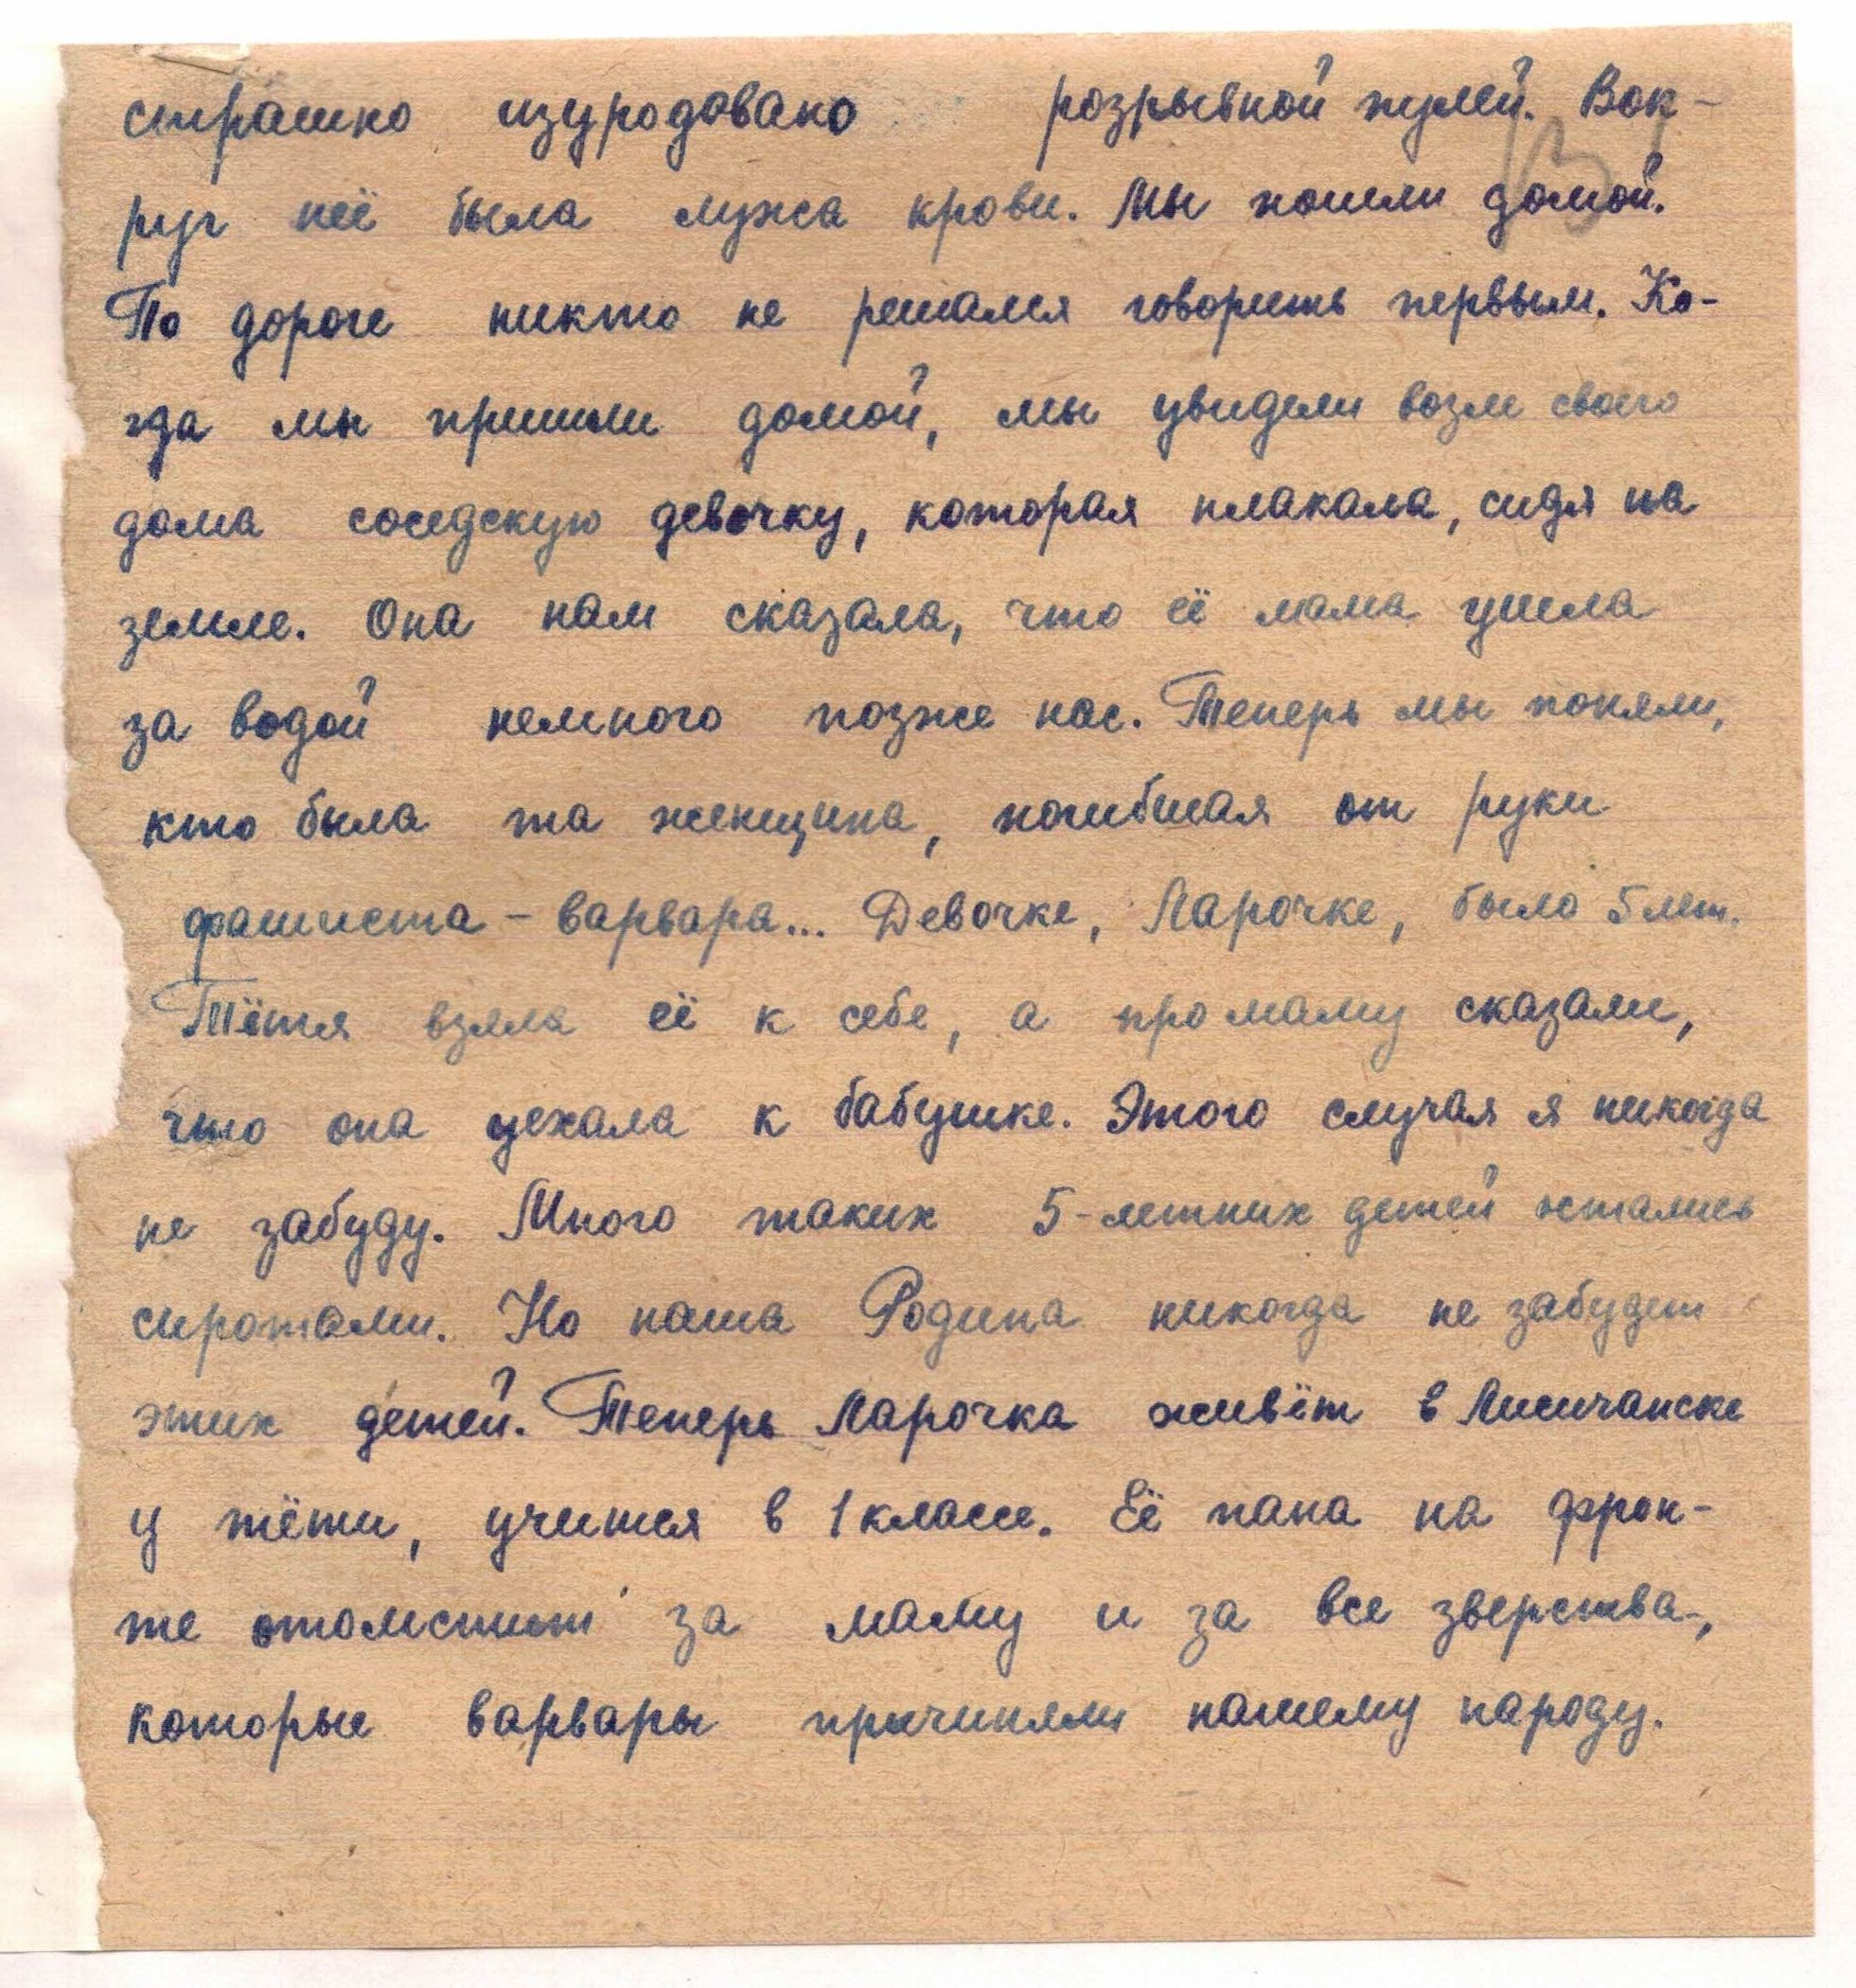 страшно изуродовано розрывной пулей. Вок-
руг неё была лужа крови. Мы пошли домой.
По дороге никто не решался говорить первым. Ко-
гда мы пришли домой, мы увидели возле своего
дома соседскую девочку, которая плакала, сидя на
земле. Она нам сказала, что её мама ушла
за водой немного позже нас. Теперь мы поняли,
кто была та женщина, погибшая от руки
фашиста - варвара... Девочке, Ларочке, было 5 лет.
Тётя взяла её к себе, а про маму сказали,
что она уехала к бабушке. Этого случая я никогда
не забуду. Много таких 5-летних детей остались
сиротами. Но наша Родина никогда не забудет
этих детей. Теперь Ларочка живёт в Лисичанске
у тёти, учится в 1 классе. Её папа на фрон-
те отомстит за маму и за все зверства,
которые варвары причиняли нашему народу.